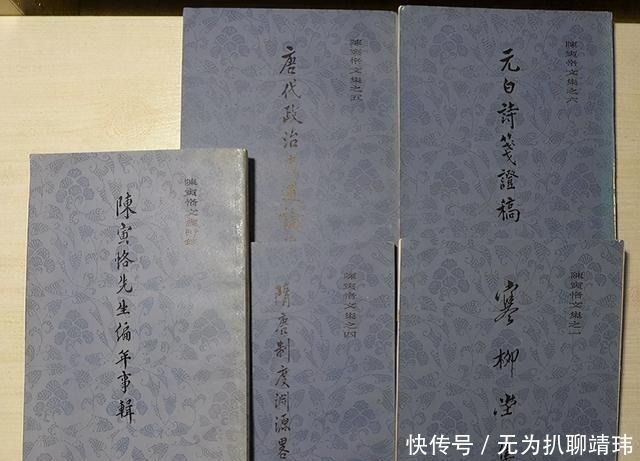 陳寅恪文集之五
唐代政治史述論
陳寅恪文集之六
元白詩箋證稿
陳寅恪文集附錄
陳寅恪先生編年事輯
陳寅恪文集之四
隋唐制度淵源畧
陳寅恪文集之一
寒柳堂集
快传号 / 无为扒聊靖玮